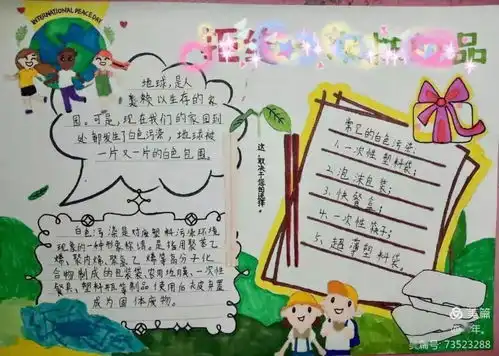 INTERNATIONAL PEACE DAY
拒绝一次性用品
地球,是人
类赖以生存的家
园。可是,现在我们的家园到
处都发生了白色污染,地球被
一片又一片的白色包围。
这,取决于您的选择。
常见的白色污染:
1.一次性塑料袋;
2.泡沫包装;
3.快餐盒;
4.一次性筷子;
5.超薄塑料袋。
白色污染是对废塑料污染环境
现象的一种形象称谓,是指用聚苯乙
烯、聚丙烯、聚氯乙烯等高分子化
合物制成的包装袋、农用地膜、一次性
餐具、塑料瓶等制品使用后
成为固体废物。
美篇
美篇号:73523288